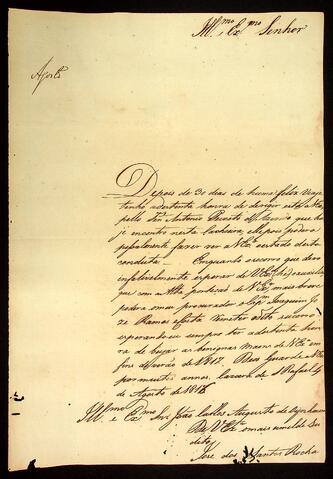 Ill.mo e Ex.mo Senhor
Agosto
Depois de 30 dias de huma feliz Viag
tenho adestenta honra de derigir esta a V.Ex.
pello Ten. Antonio que ho
je encontro nesta elle pois podera
pesoalmente fazer ver a V.Ex.a o estado desta
conduta. Emquanto o socorro que devo
infalivelmente esperar de V.Ex.a
que com a Alta de V.Ex.a mais breve
podera o meu procurador o Cap.m Joaquim Jo
ze Ramos este socorro
esperando eu sempre ter adestenta hon
ra de beijar as benignas maons de V.Ex.a em
fins de verão de 1817. Deos Guarde a V.Ex.a
por muitos annos, de S. Rafael 4
de Agosto de 1816
Ill.mo e Ex.mo Snr. João Carlos Augusto de Oeynhausen
De V.Ex.a o mais umilde Su
dito
Jose dos Santos Rocha